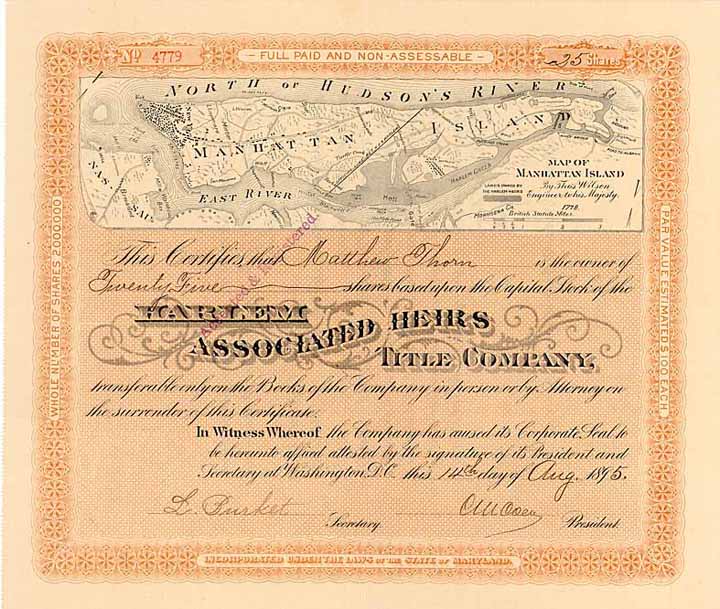 No 4779
FULL PAID AND NON-ASSESSABLE
25 Shares
NORTH OR HUDSON'S RIVER
MANHATTAN ISLAND
EAST RIVER
HARLEM CREEK
Hell
MAP OF
MANHATTAN ISLAND
By Thos Wilson
Engineer to his Majesty.
1778.
British Statute Miles.
LANDS OWNED BY
THE HARLEM HEIRS
WHOLE NUMBER OF SHARES 2000.000
PAR VALUE ESTIMATED $100 EACH
This Certifies, that Matthew Thorn is the owner of
Twenty Five shares based upon the Capital Stock of the
HARLEM
ASSOCIATED HEIRS
TITLE COMPANY,
transferable only on the Books of the Company in person or by Attorney on
the surrender of this Certificate.
In Witness Whereof, the Company has caused its Corporate Seal to
be hereunto affixed attested by the signature of its President and
Secretary at Washington, D.C. this 14th day of Aug. 1895.
L. Burket
Secretary.
President.
INCORPORATED UNDER THE LAWS OF THE STATE OF MARYLAND.